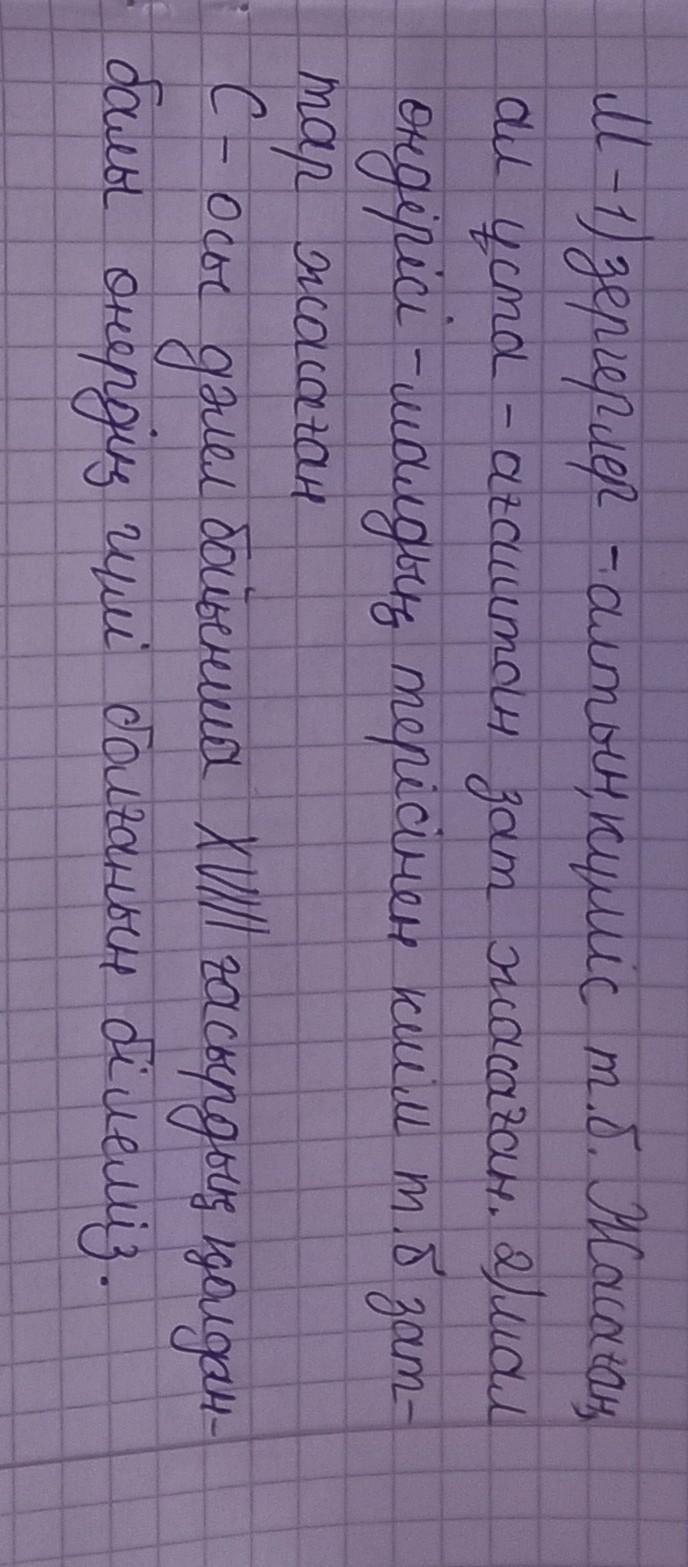 М - 1) зергерлер - алтын, күміс т.б. Жасаған,
ал ұста - ағаштан зат жасаған. 2) мал
өндірісі - малдың терісінен киім т.б зат-
тар жасаған
С - осы дәлел бойынша XVIII ғасырдың қолдан-
балы өнердің гүлі болғанын білеміз.